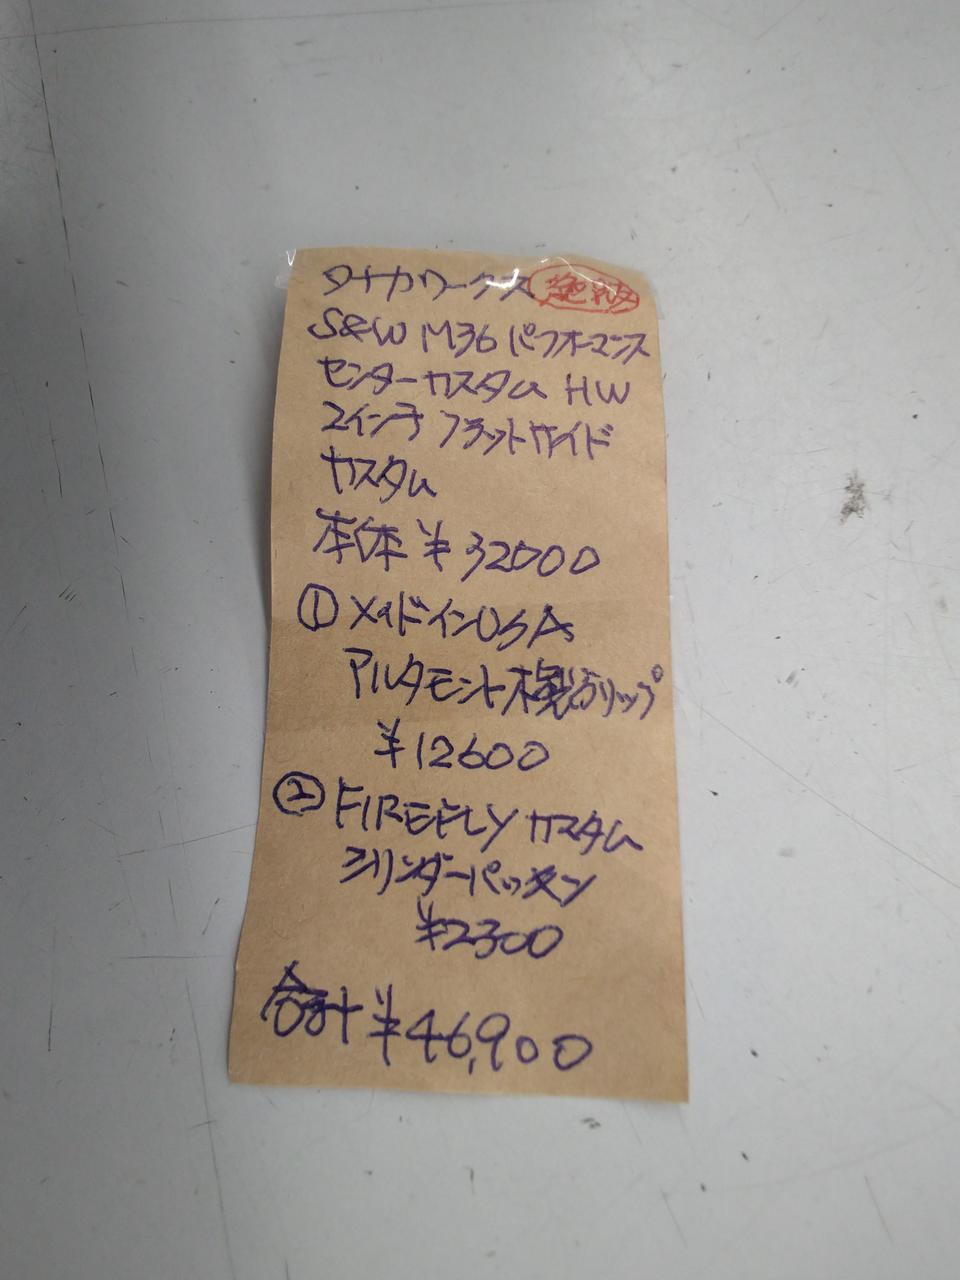 タナカワークス 絶版
S&W M36 パフォーマンス
センターカスタム HW
2インチ フラットサイド
カスタム
本体 ¥32000
① メイドインUSA
アルタモント木製グリップ
¥12600
② FIREFLY カスタム
シリンダーパッキン
¥2300
合計 ¥46,900